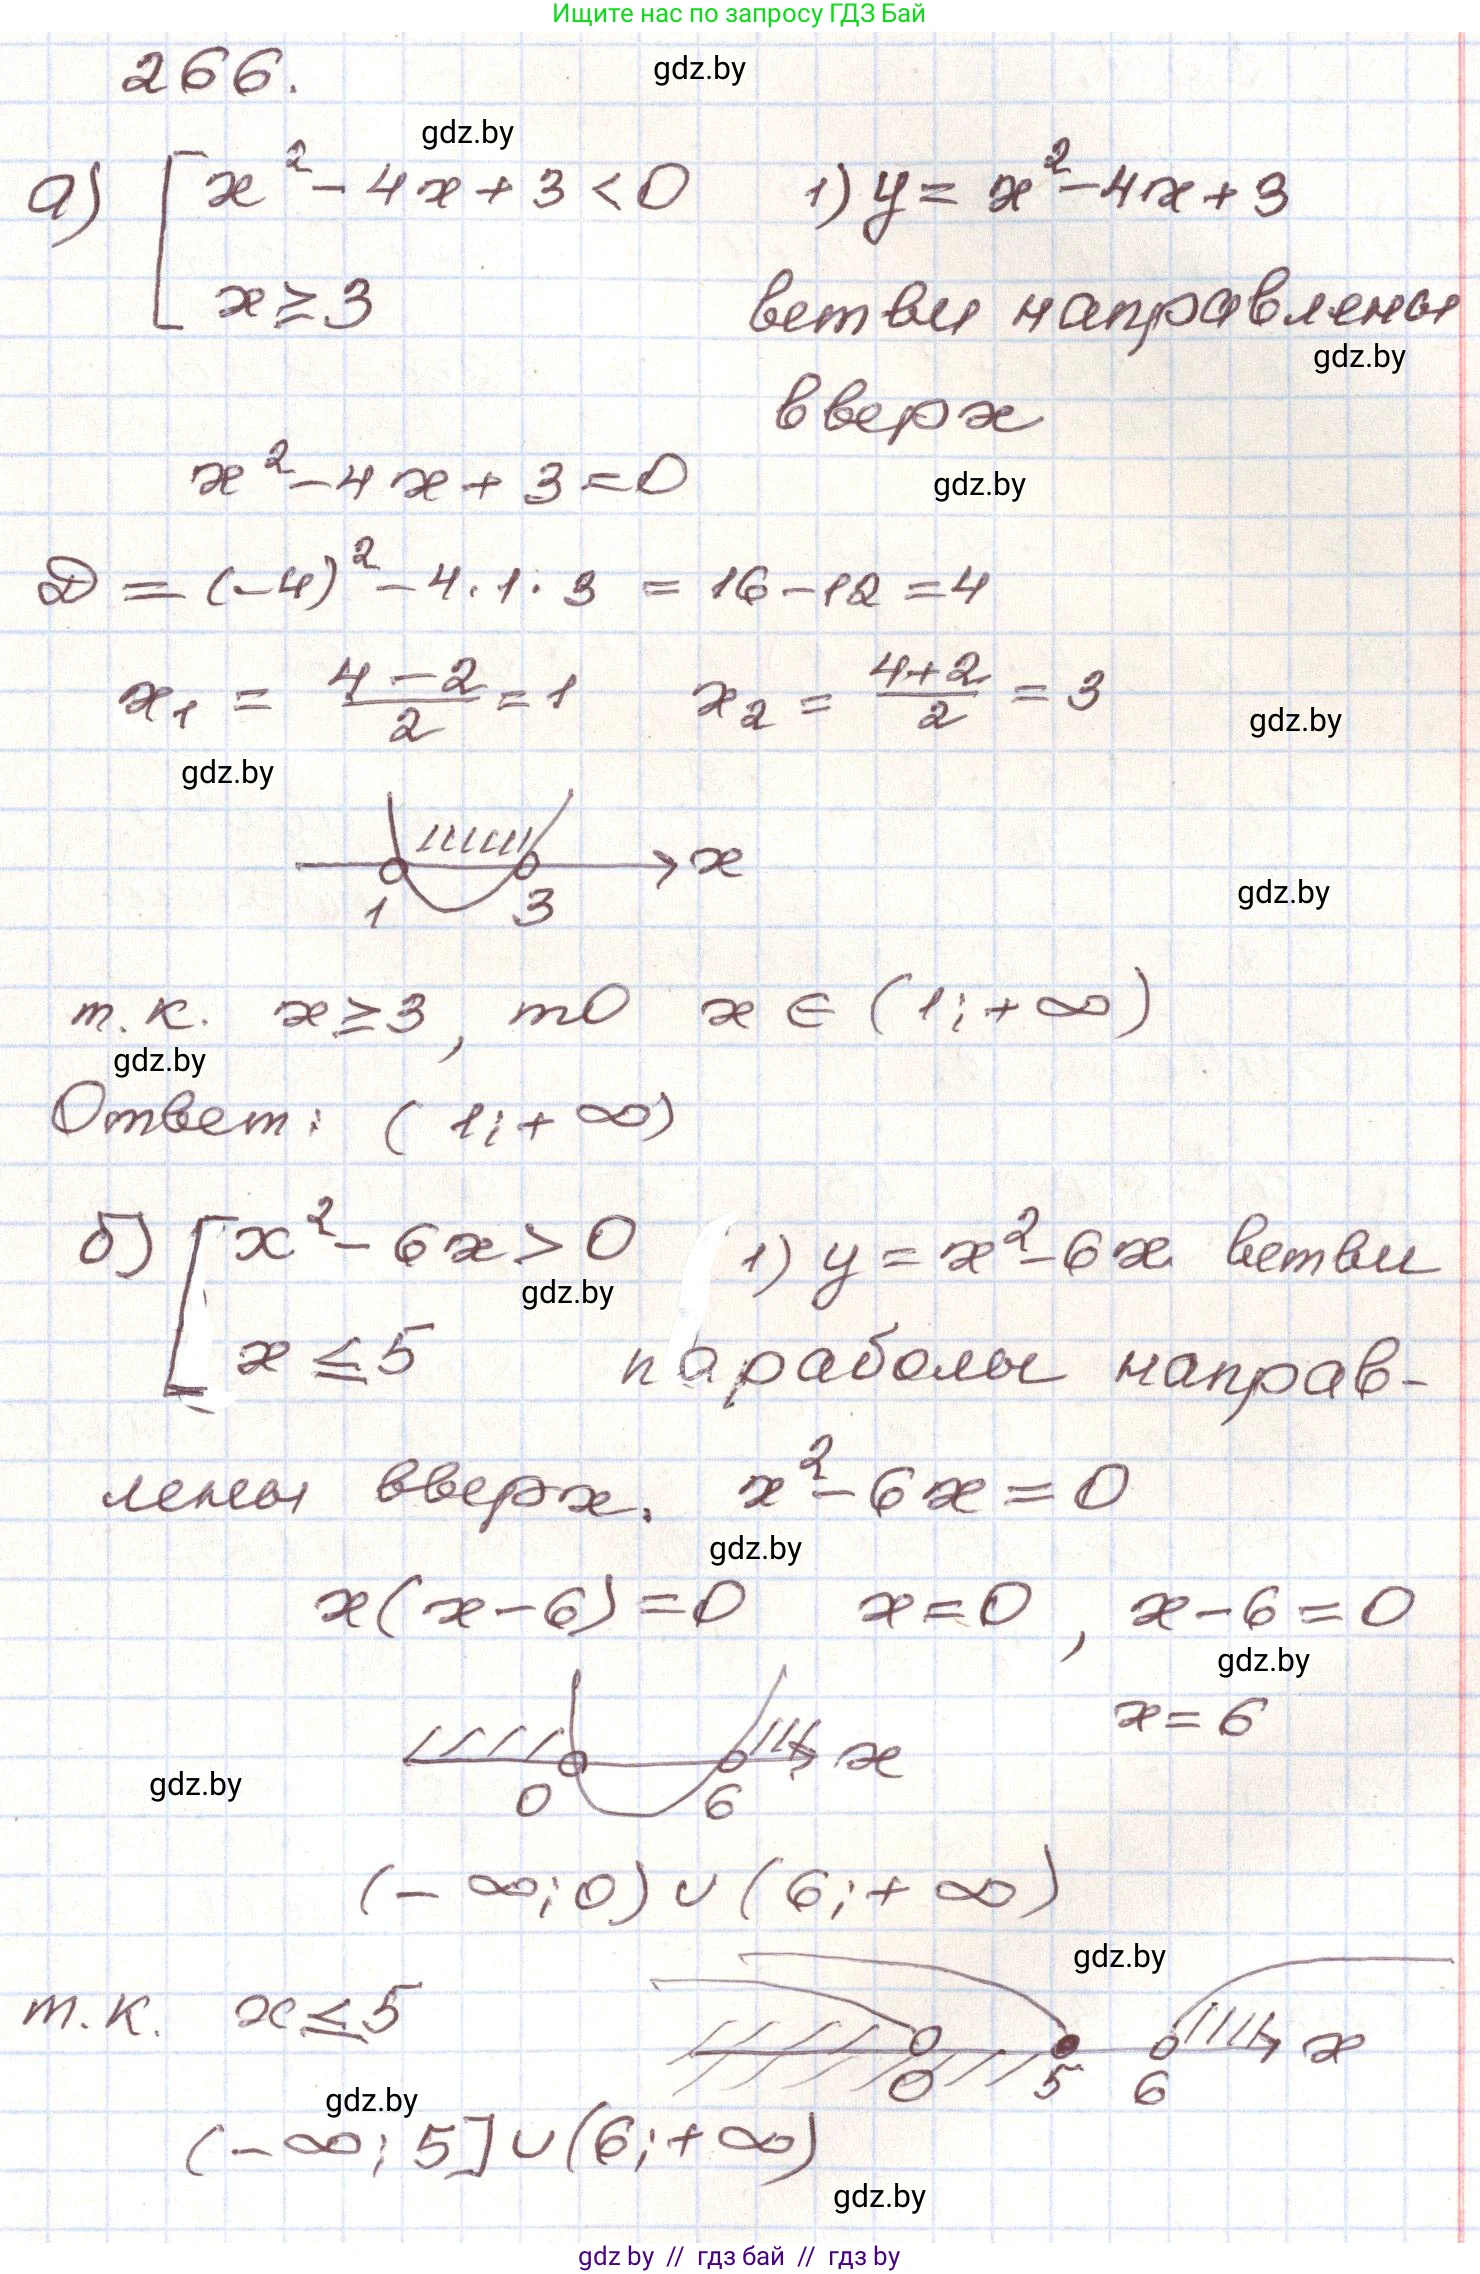 Ищите нас по запросу ГДЗ Бай
266.
gdz.by
gdz.by
а) [ x² - 4x + 3 < 0    1) y = x² - 4x + 3
x ≥ 3    ветви направлены
gdz.by
вверх
x² - 4x + 3 = 0
gdz.by
D = (-4)² - 4·1·3 = 16 - 12 = 4
x₁ = (4 - 2)/2 = 1    x₂ = (4+2)/2 = 3
gdz.by
gdz.by
x
1    3
gdz.by
т.к. x ≥ 3, то x ∈ (1; +∞)
gdz.by
Ответ: (1; +∞)
б) [ x² - 6x > 0    1) y = x² - 6x ветви
gdz.by
x ≤ 5    параболы направ-
лены вверх. x² - 6x = 0
gdz.by
x(x - 6) = 0    x = 0, x - 6 = 0
gdz.by
x = 6
x
gdz.by
0    6
(-∞; 0) ∪ (6; +∞)
gdz.by
т.к. x ≤ 5
x
0    5    6
gdz.by
(-∞; 5] ∪ (6; +∞)
gdz.by
gdz by // гдз бай // гдз by